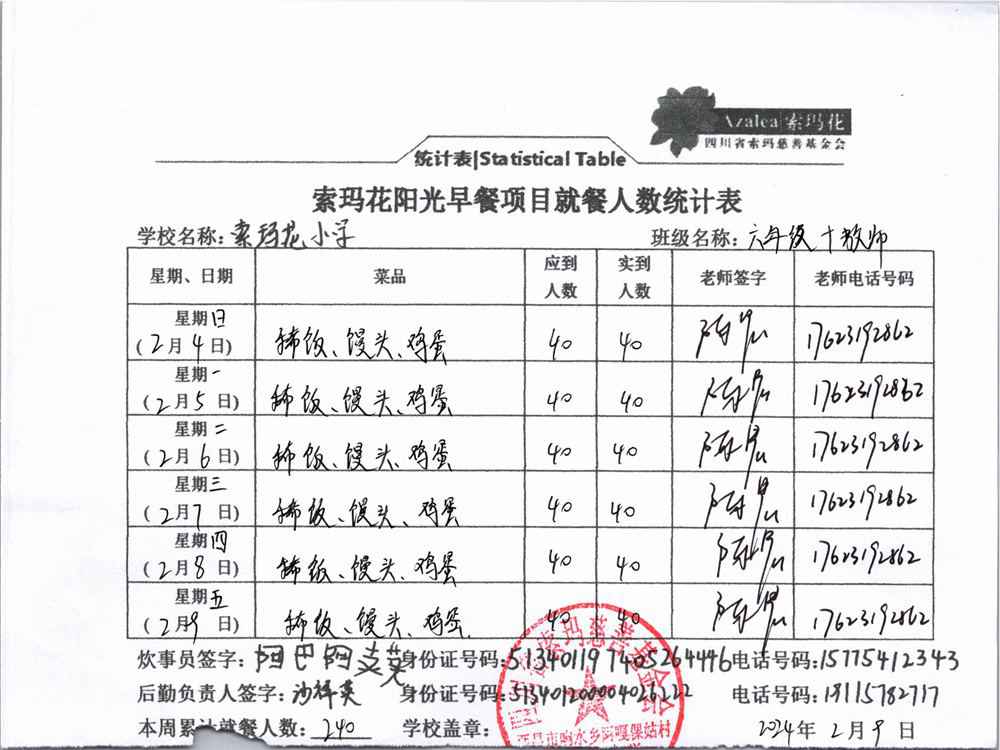 Azalea 索玛花
四川省索玛慈善基金会
统计表|Statistical Table
索玛花阳光早餐项目就餐人数统计表
学校名称: 索玛花小学 班级名称: 六年级十教师
星期、日期 菜品 应到人数 实到人数 老师签字 老师电话号码
星期日 (2月4日) 稀饭、馒头、鸡蛋 40 40 17623192862
星期一 (2月5日) 稀饭、馒头、鸡蛋 40 40 17623192862
星期二 (2月6日) 稀饭、馒头、鸡蛋 40 40 17623192862
星期三 (2月7日) 稀饭、馒头、鸡蛋 40 40 17623192862
星期四 (2月8日) 稀饭、馒头、鸡蛋 40 40 17623192862
星期五 (2月9日) 稀饭、馒头、鸡蛋 40 40 17623192862
炊事员签字: 阿巴阿支英 身份证号码: 513401197405264446 电话号码: 15775412343
后勤负责人签字: 沙祥英 身份证号码: 513401200004026222 电话号码: 18115782717
本周累计就餐人数: 240 学校盖章: 2024年2月9日
索玛慈善基金会
西昌市响水乡阿嘎保姑村